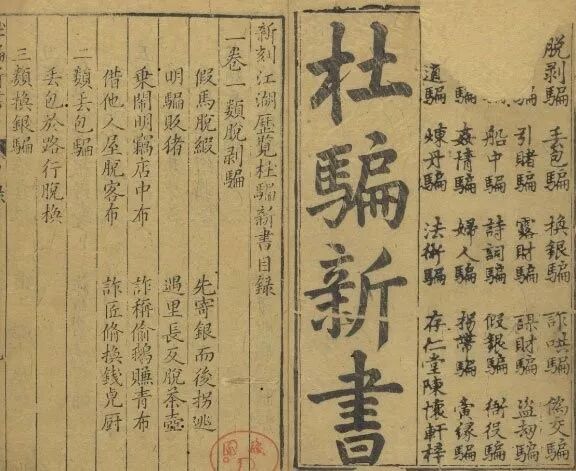 脫剝騙 丟包騙 換銀騙 詐哄騙 偽交騙
騙 引賭騙 露財騙 謀財騙 盜劫騙
騙 船中騙 詩詞騙 假銀騙 衙役騙
騙 姦情騙 婦人騙 拐帶騙 夤緣騙
道騙 煉丹騙 法術騙 存仁堂陳懷軒梓
杜騙新書
新刻江湖歷覽杜騙新書目錄
一卷一類脫剝騙
假馬脫緞 先寄銀而後拐逃
明騙販猪 遇里長反脫茶壺
乘鬧明竊店中布 詐稱偷鵝賺青布
借他人屋脫客布 詐匠脩換錢卓厨
二類丟包騙
丟包於路行脫換
三類換銀騙